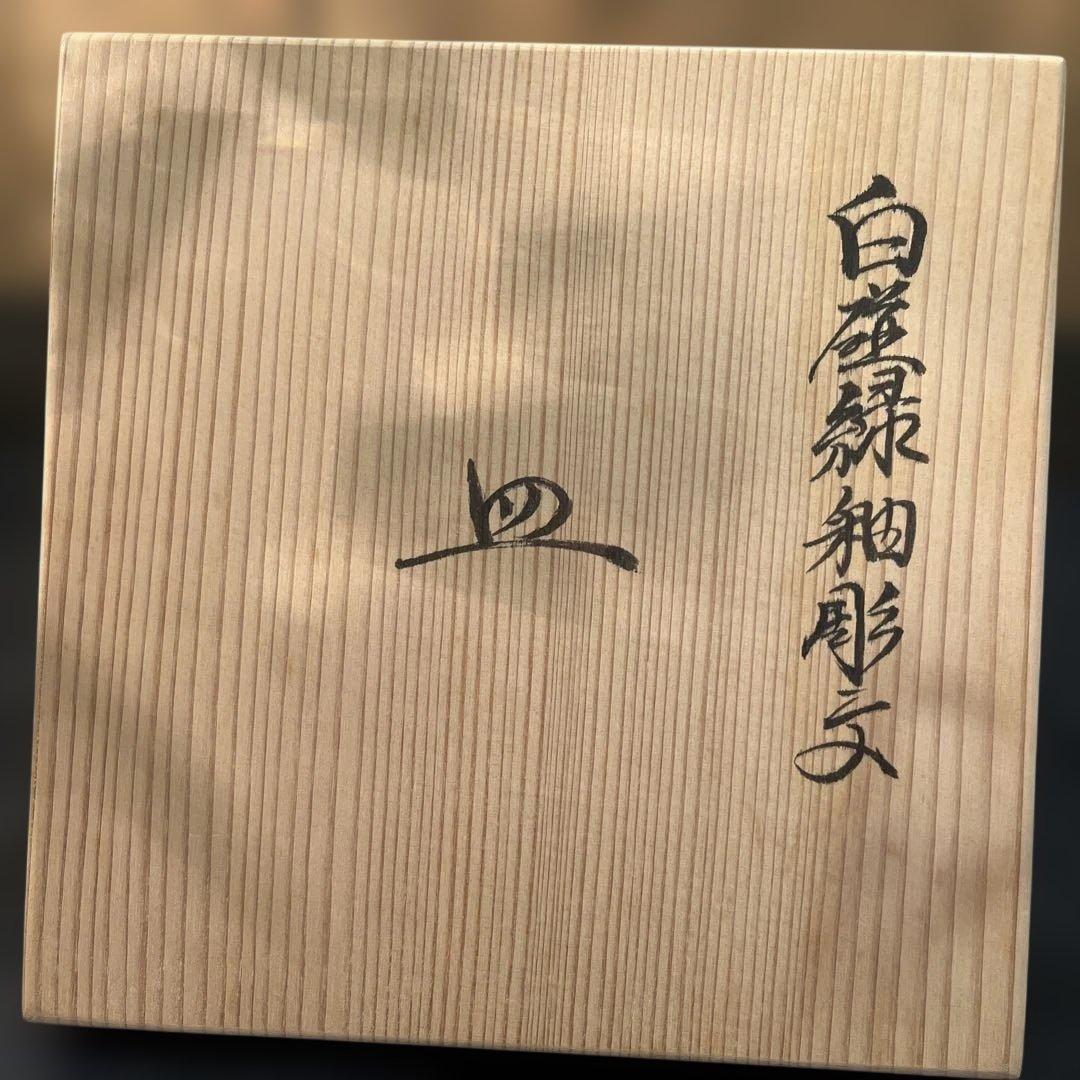 白磁緑釉彫文
皿